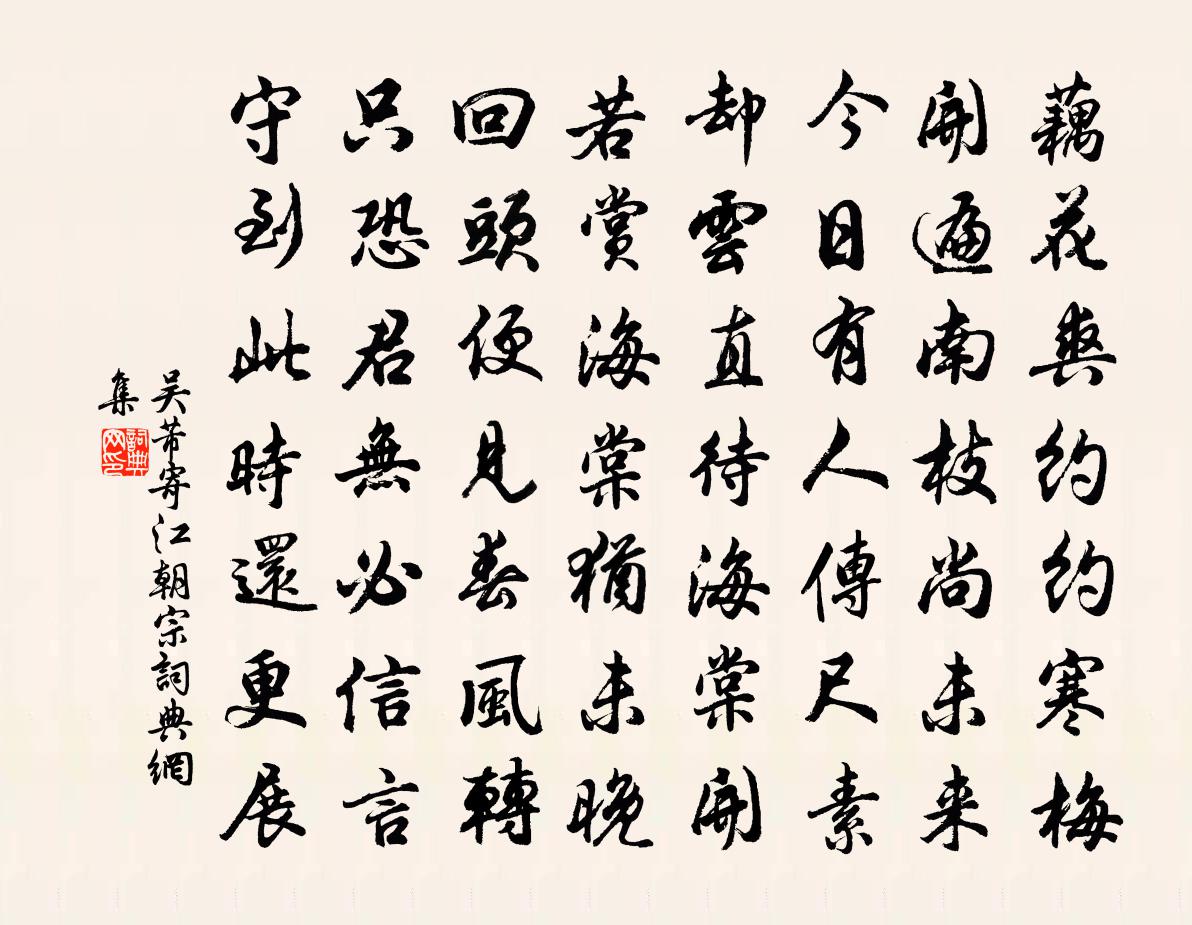 藕花爽約約寒梅
開遍南枝尚未来
今日有人傳尺素
却雲直待海棠開
若賞海棠猶未晚
回頭便見春風轉
只恐君無必信言
守到此時還更展
吴芾寄江朝宗詞典網
集
詞典
网印